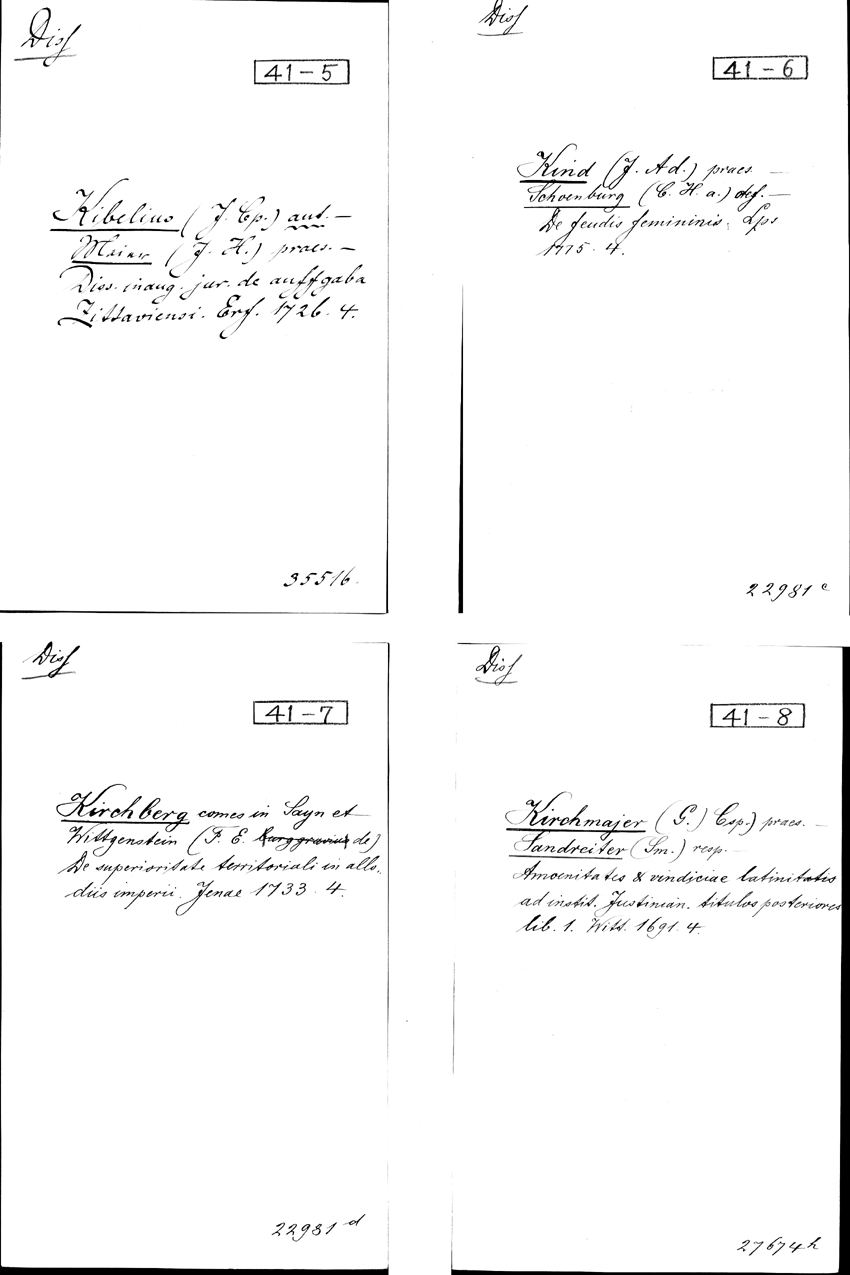 Diss
41-5
Kibelius (J. Cp.) aut. —
Meier (J. H.) praes. —
Diss. inaug. jur. de auffgaba
Zittaviensi. Erf. 1726. 4.
35516.
Diss
41-6
Kind (J. Ad.) praes. —
Schoenburg (C. H. a.) def. —
De feudis femininis. Lps
1775. 4.
22981 c
Diss
41-7
Kirchberg comes in Sayn et
Wittgenstein (F. E. burggravius de)
De superioritate territoriali in allo-
diis imperii. Jenae 1733. 4.
22981 d
Diss
41-8
Kirchmajer (G.) Csp.) praes. —
Sandreiter (Sm.) resp. —
Amoenitates & vindiciae latinitatis
ad instit. Justinian. titulos posteriores
lib. 1. Witt. 1691. 4.
27674 h